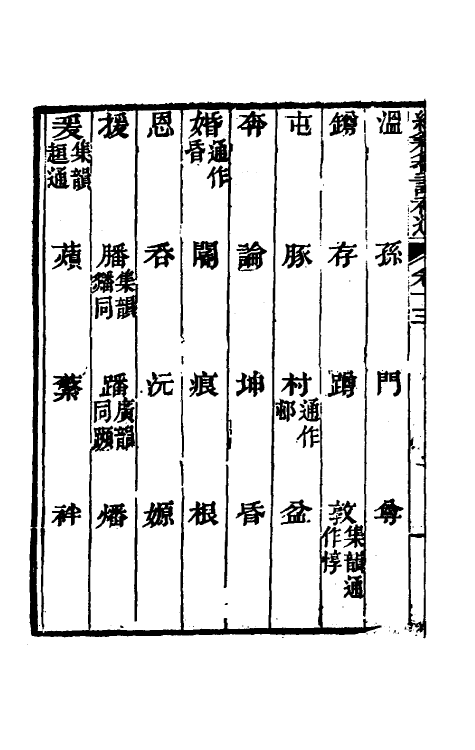 溫 孫 門 尊
鐏 存 蹲 敦集韻通作惇
屯 豚 村通作邨 盆
奔 論 坤 昏
婚通作昏 閽 痕 根
恩 吞 沅 嫄
援 膰集韻𤏲同 蹯廣韻同蹞 燔
爰集韻趄通 蘋 蘩 袢